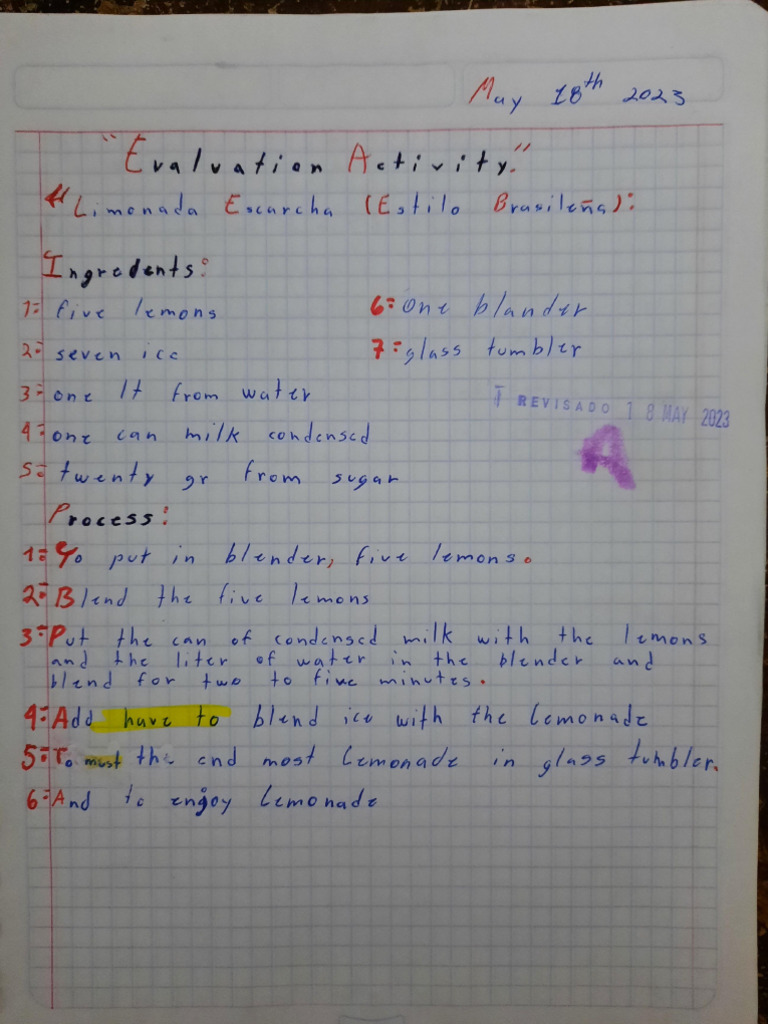 May 18th 2023
"Evaluation Activity."
"Limonada Escarcha (Estilo Brasileña):
Ingredents:
1= five lemons
2= seven ice
3= one lt from water
4= one can milk condensed
5= twenty gr from sugar
6= One blander
7= glass tumbler
T REVISADO 18 MAY 2023
A
Process:
1= Go put in blender, five lemons.
2= Blend the five lemons
3= Put the can of condensed milk with the lemons
and the liter of water in the blender and
blend for two to five minutes.
4= Add have to blend ice with the lemonade
5= To must the end most lemonade in glass tumbler.
6= And to enjoy lemonade